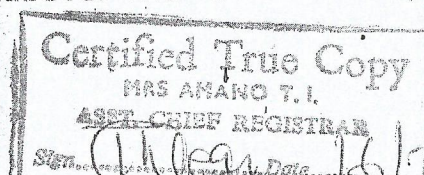 Certified True Copy
MRS AMANO T. I.
ASST. CHIEF REGISTRAR
Sign. Date